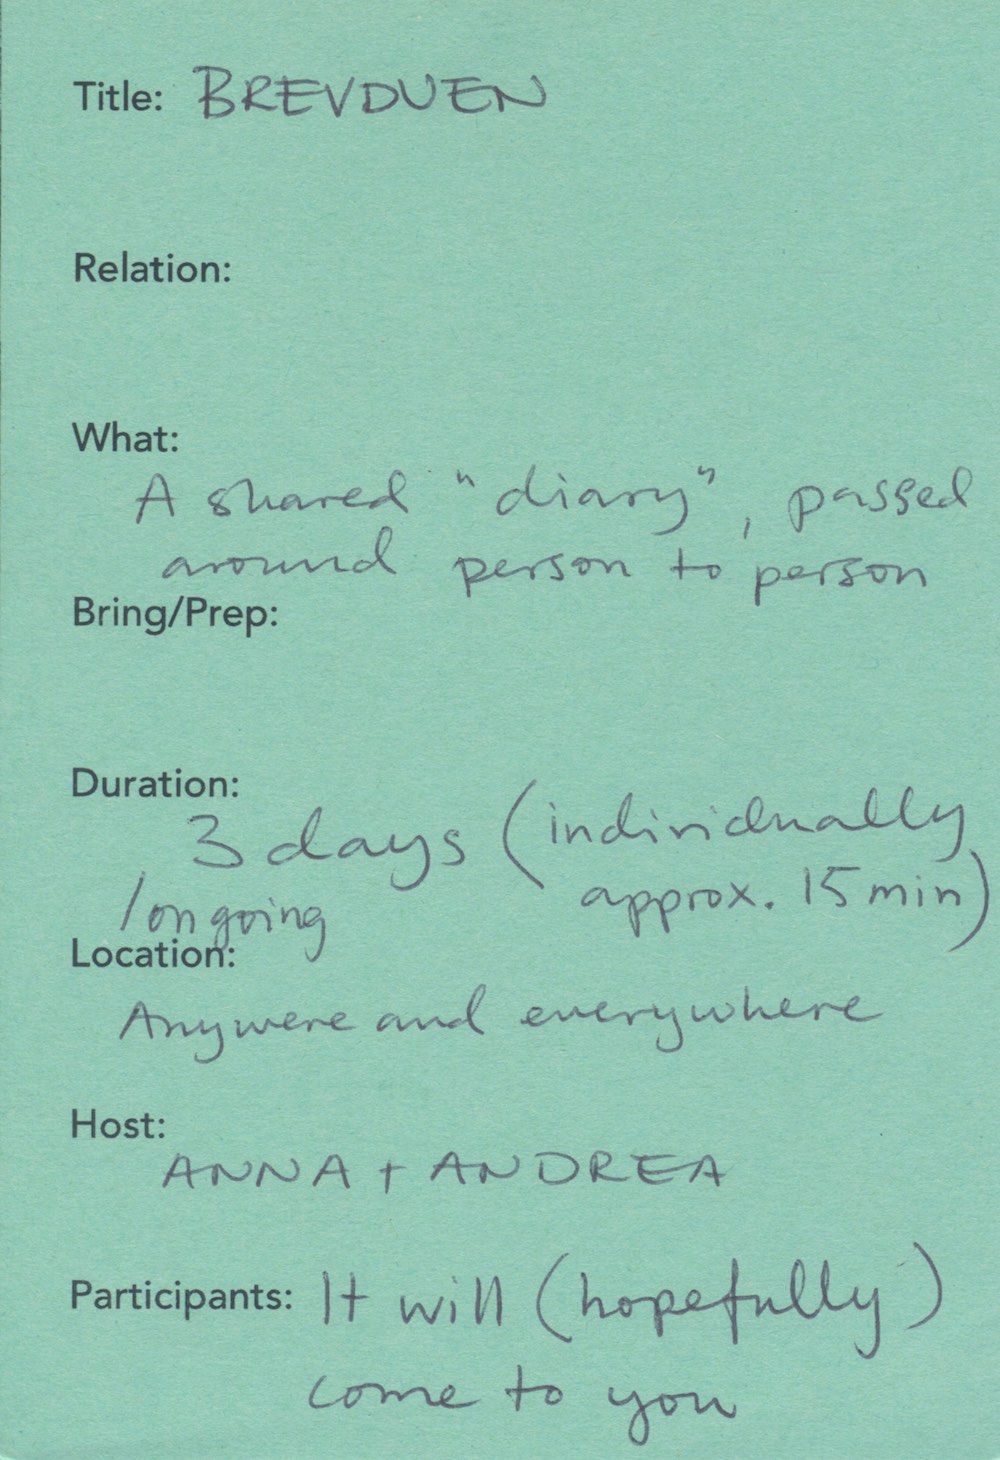 Title: BREVDUEN
Relation:
What:
A shared "diary", passed
around person to person
Bring/Prep:
Duration:
3 days (individually
/ongoing approx. 15 min)
Location:
Anywere and everywhere
Host:
ANNA + ANDREA
Participants: It will (hopefully)
come to you